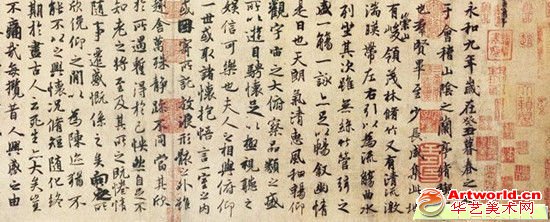 永和九年歲在癸丑暮春
于會稽山陰之蘭亭脩
也群賢畢至少長咸集此
有崇山峻領茂林脩竹又有清流激
湍暎帶左右引以為流觴曲
列坐其次雖無絲竹管弦之
盛一觴一詠亦足以暢敘幽情
是日也天朗氣清惠風和暢仰
觀宇宙之大俯察品類之盛
所以遊目騁懷足以極視聽之
娛信可樂也夫人之相與俯仰
一世或取諸懷抱悟言一室之內
或因寄所託放浪形骸之外雖
趣舍萬殊靜躁不同當其欣
於所遇蹔得於己怏然自足不
知老之將至及其所之既惓情
隨事遷感慨係之矣向之
欣俛仰之閒以為陳迹猶不
能不以之興懷況脩短隨化終
期於盡古人云死生亦大矣豈
不痛哉每攬昔人興感之由
Artworld.cn
华艺美术网